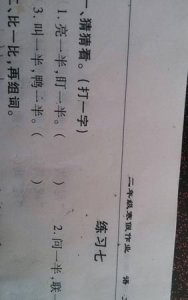 二年级寒假作业 语
练习七
一、猜猜看。(打一字)
1. 亮一半,盯一半。( ) 2. 问一半,联
3. 叫一半,鸭一半。( )
二、比一比,再组词。